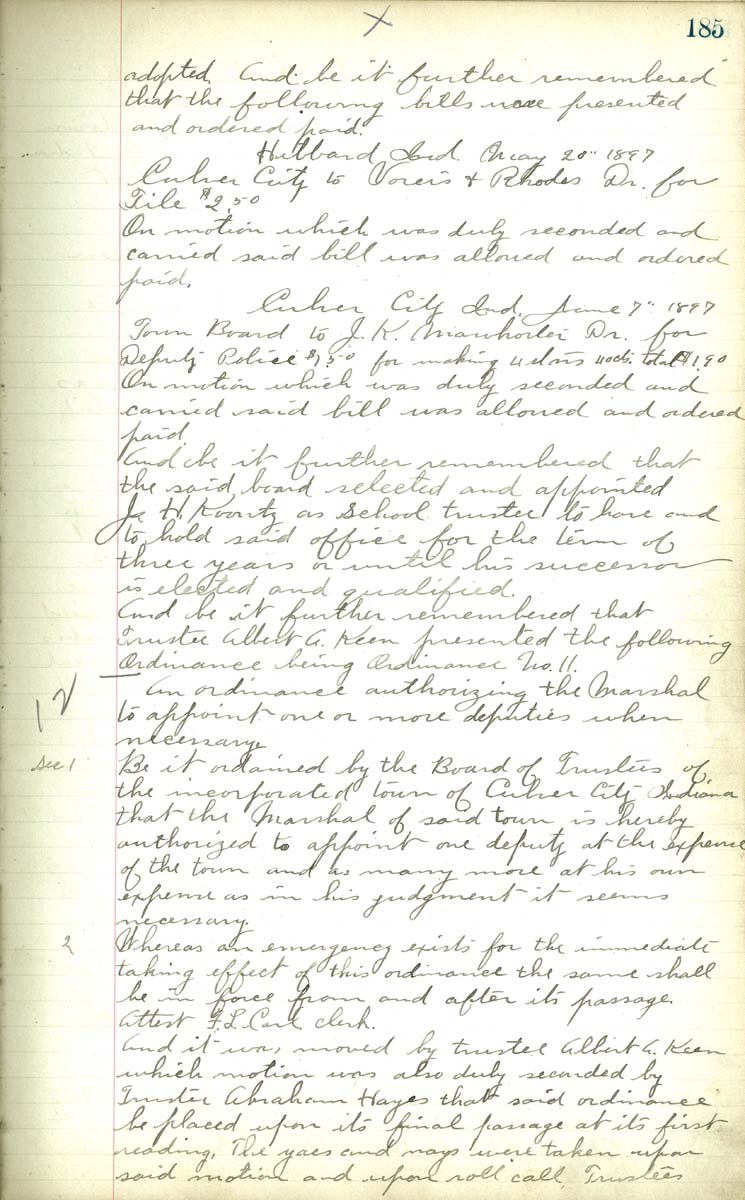 185
adopted. And be it further remembered
that the following bills were presented
and ordered paid.
Hibbard Ind. May 20" 1897
Culver City to Voreis & Rhodes Dr. for
Tile $2.50
On motion which was duly seconded and
carried said bill was allowed and ordered
paid.
Culver City Ind. June 7" 1897
Town Board to J. K. Mawhorter Dr. for
Deputy Police $1.50 for making 4 40cts. total $1.90
On motion which was duly seconded and
carried said bill was allowed and ordered
paid.
And be it further remembered that
the said board selected and appointed
H. Koontz as School trustee to have and
to hold said office for the term of
three years or until his successor
is elected and qualified.
And be it further remembered that
Trustee Albert A. Keen presented the following
Ordinance being Ordinance No. 11.
12
An ordinance authorizing the Marshal
to appoint one or more deputies when
necessary.
Sec 1
Be it ordained by the Board of Trustees of
the incorporated town of Culver City Indiana
that the Marshal of said town is hereby
authorized to appoint one deputy at the expense
of the town and as many more at his own
expense as in his judgment it seems
necessary.
2
Whereas an emergency exists for the immediate
taking effect of this ordinance the same shall
be in force from and after its passage.
Attest F. L. Carl clerk.
And it was moved by trustee Albert A. Keen
which motion was also duly seconded by
Trustee Abraham Hayes that said ordinance
be placed upon its final passage at its first
reading. The yaes and nays were taken upon
said motion and upon roll call, Trustees